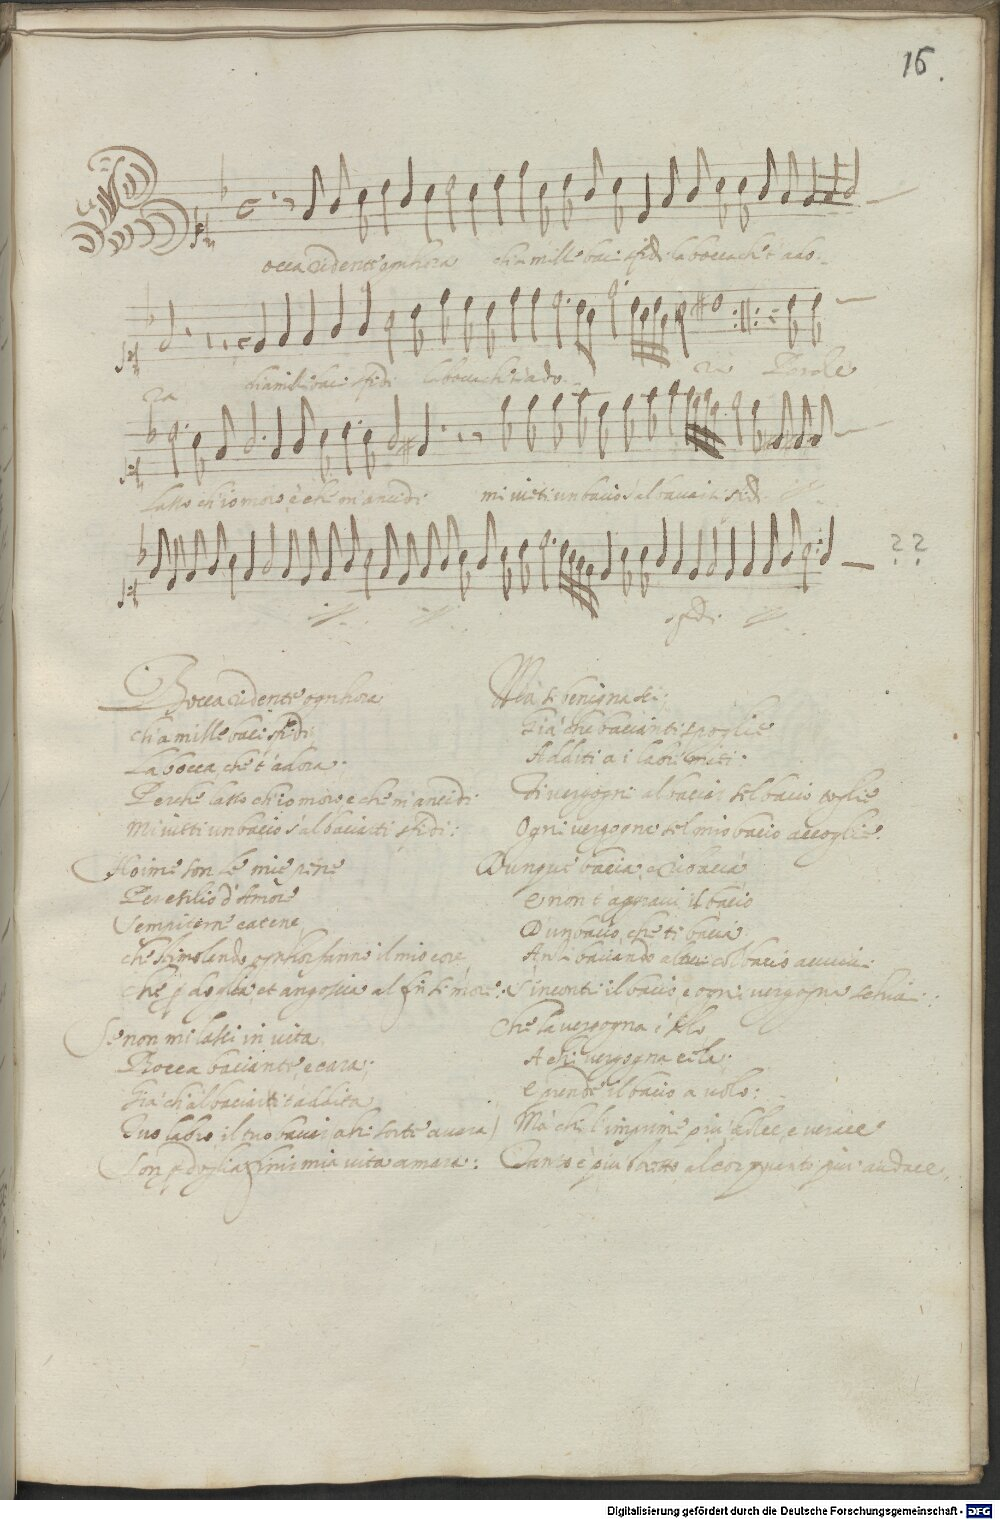 16.
Bocca ridente ogn'hora ch'a mille baci sfidi la bocca che t'ado-
ra ch'a mille baci sfidi la bocca che t'ado- ra Perche
lasso ch'io moro e che m'ancidi mi vieti un bacio s'al baciarti sfidi
sfidi
??
Bocca ridente ogn'hora
ch'a mille baci sfidi
La bocca, che t'adora;
Perche lasso ch'io moro, e che m'ancidi
Mi vieti un bacio s'al baciarti sfidi:
Hoime son le mie pene
Per esilio d'Amore
Sempiterne catene,
che stimolando ogn'hor fanno il mio core
Che p doglia et angoscia al fin si more:
Se non mi lasci in vita,
Bocca baciante, e cara;
Gia ch'al baciarti t'addita
Tuo labro il tuo baciar ahi sorte avara
Son p doglia finir mia vita amara:
Ma si benigna sei;
Gia che baciarti spoglie
Additi a i labri miei:
Ti vergogni al baciar s'el bacio toglie
Ogni vergogna s'el mio bacio accoglie.
Dunque bacia, e ribacia
E non t'aggravi il bacio
D'un bacio, che ti bacia
Anzi baciando col bacio
S'incontri il bacio e ogni vergogna
Che la vergogna è solo
A chi vergogna cela;
E prende il bacio a volo:
Ma chi l'imprime più felice, e verace
Tanto è più al cor quanto più audace.
Digitalisierung gefördert durch die Deutsche Forschungsgemeinschaft - DFG